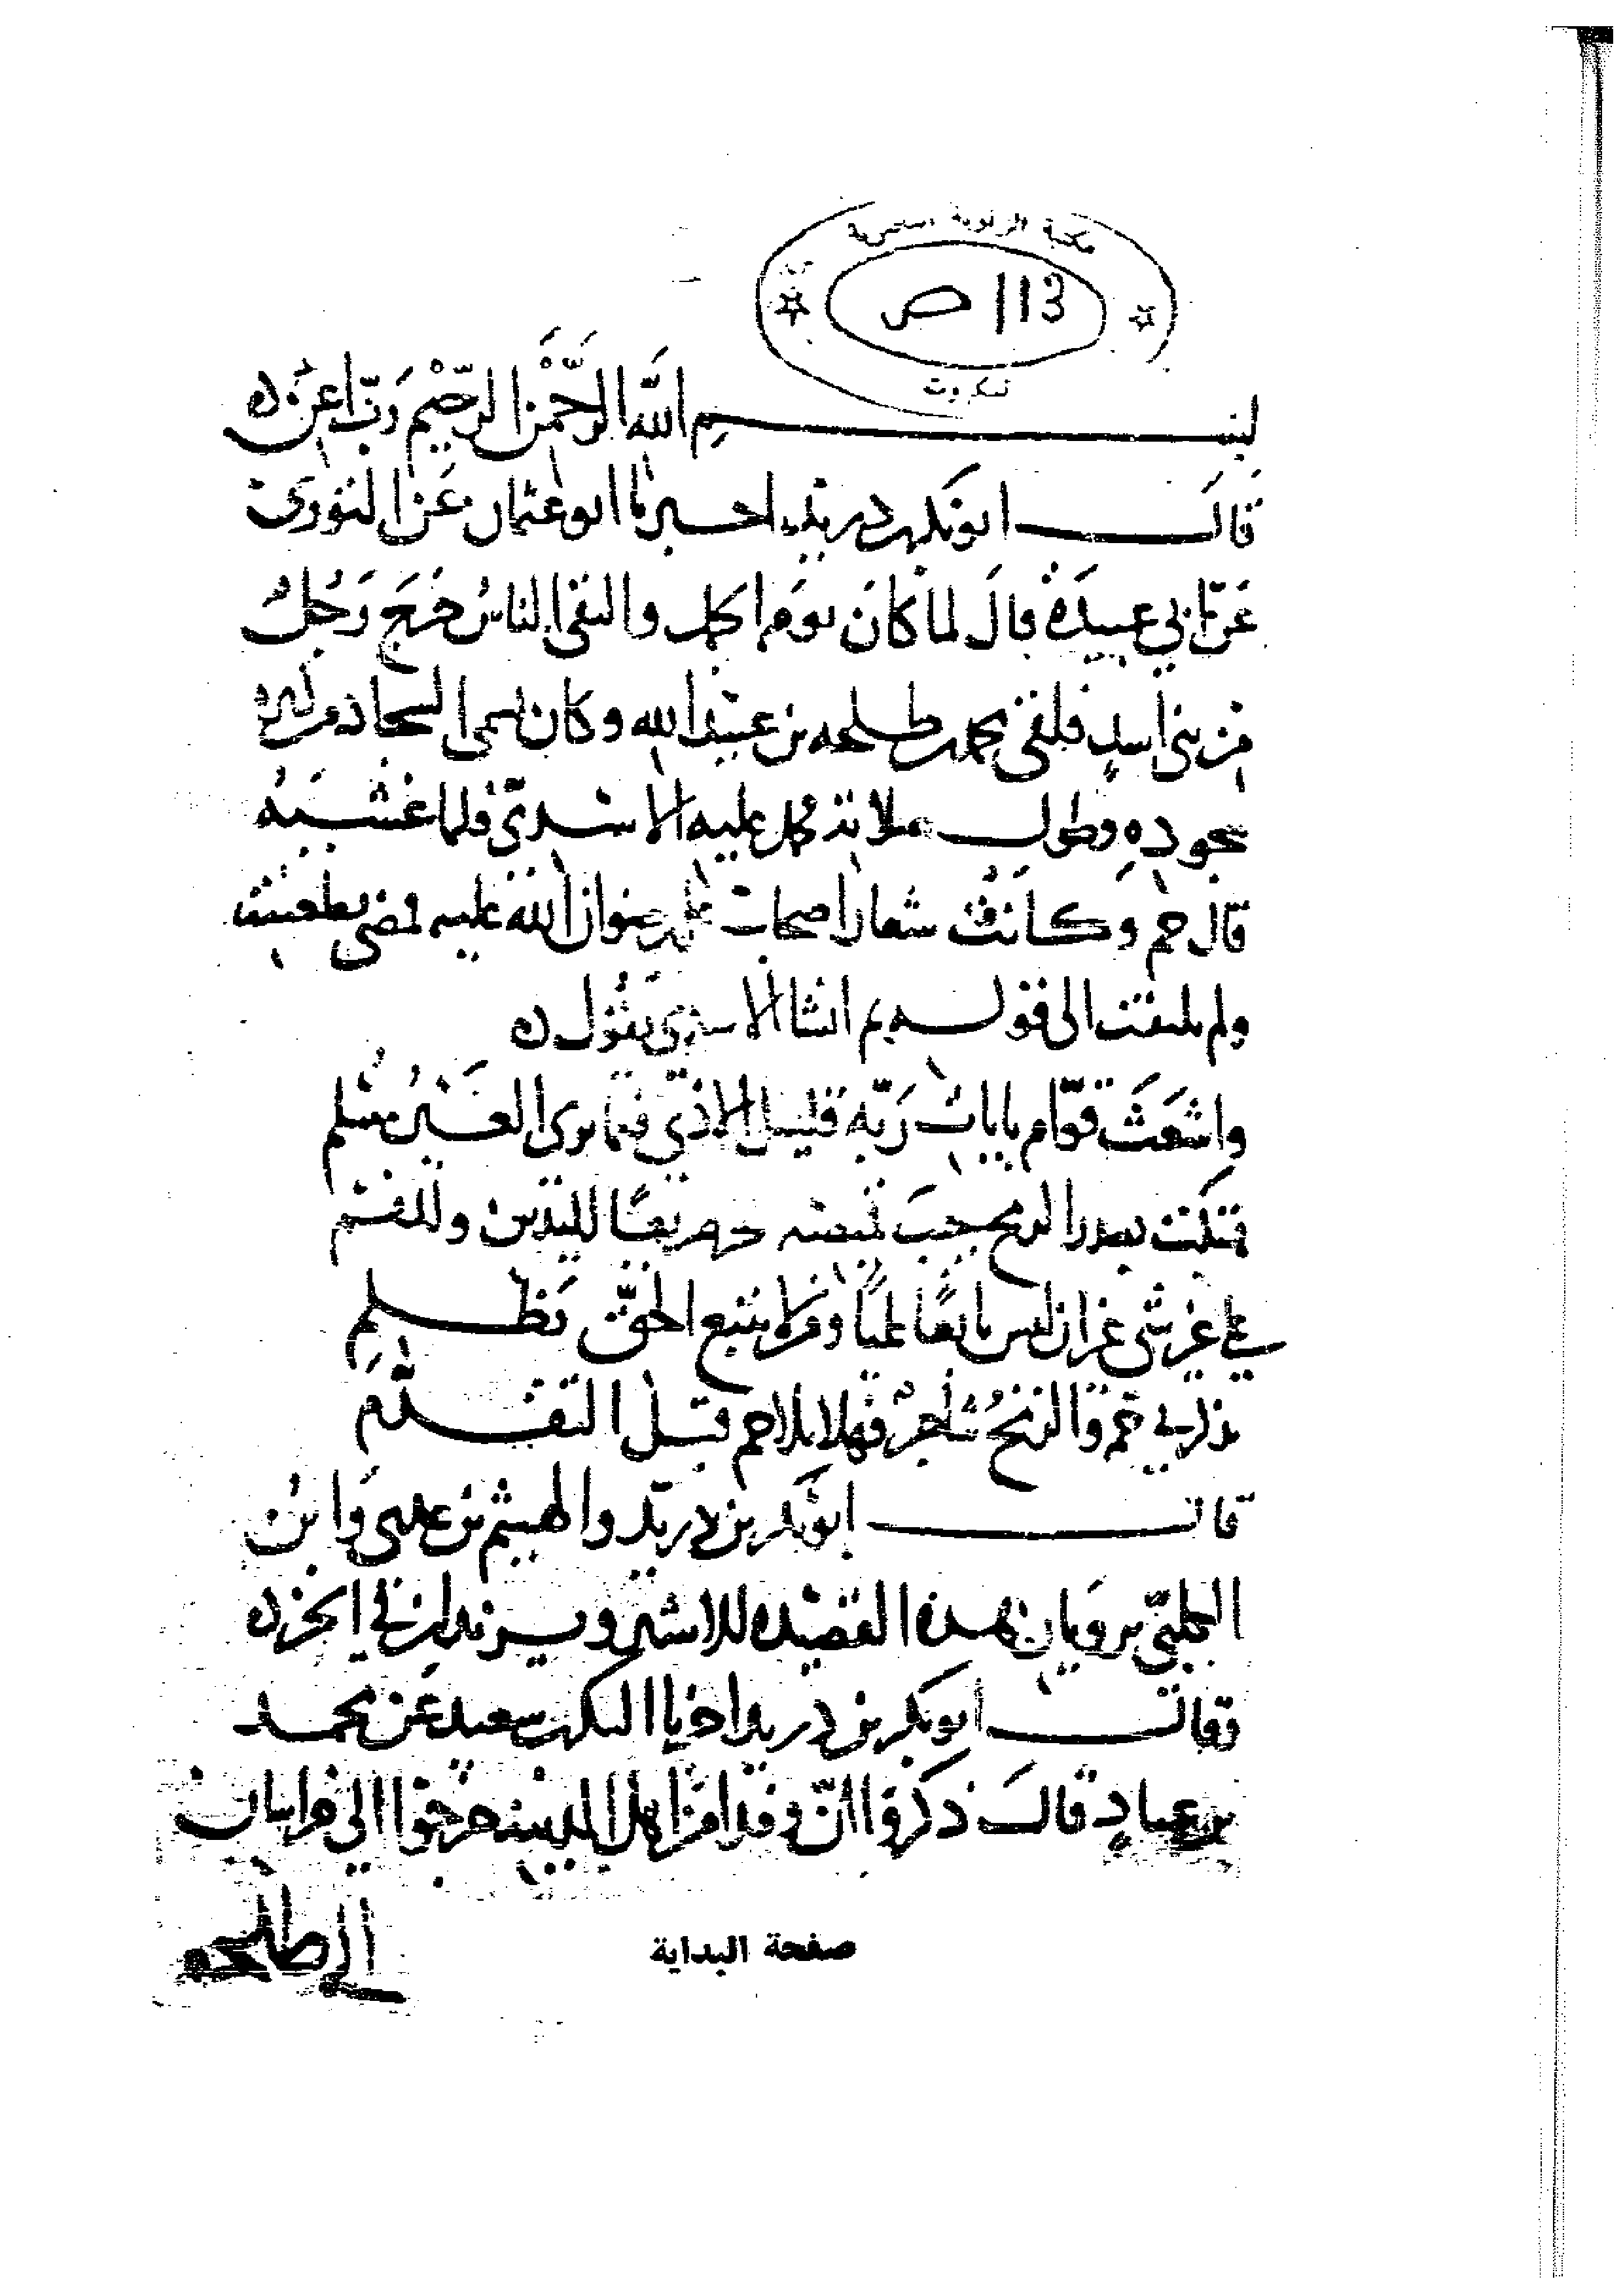 مكتبة الزاوية الناصرية
113 ص
تمكروت
بسم الله الرَّحْمَن الرَّحِيْم رَبّ أعن
قالَ ابو بكر بن دريد اخبرنا ابو عثمان عَن التوزي
عَن ابي عبيدَة قالَ لما كانَ يوم الجمل والتقى الناسُ خَرَجَ رَجُلٌ
من بني اسدٍ فلقى محمد بن طلحه بن عبيد الله وكان يسمى السجاد من كثرة
سجودهِ وطول صلاته فحمل عليه الاسديّ فلما غشيه
قال حم وكانَت شعار اصحاب علي رضوان الله عليه فمضى يطعنه
ولم يلتفت الى قوله ثم انشا الاسدي يَقُول
واشعَثَ قوّام باياتِ رَبّه قليل الاذى فيما يرى العَيْنُ مُسْلم
هتكت بصدر الرمح جيبَ قميصه فخر صريعًا لليدين وللفم
على غير شي غير ان ليس تابعًا عليًا ومن لا يتبع الحقّ يَظلمِ
يذكرني حم والرّمْحُ شاجرٌ فهلا تلا حم قبل التقدّمِ
قال ابو بكر بن دريد والهيثم بن عدي وَابن
الكلبيّ يرويان هذه القصيده للاشتر
وقال ابو بكر بن دريد اخبرنا السكن بن سعيد عَن محمد
بن عبادٍ قالَ ذكرُوا انّ وفدا من اهل المدينه خرجوا الى خراسان
الى طلحه
صفحة البداية